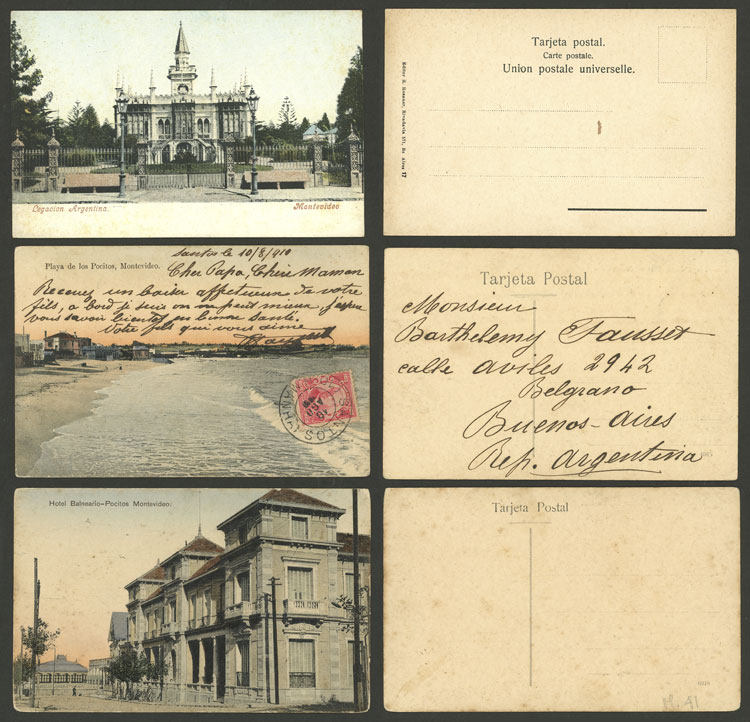 Legacion Argentina.
Montevideo
Tarjeta postal.
Carte postale.
Union postale universelle.
Editor R. Rosauer, Rivadavia 571, Bs Aires 17
Playa de los Pocitos, Montevideo.
Santos le 10/8/910
Cher Papa, Chère Maman
Recevez un baiser affectueux de votre
fils, a bord je suis on ne peut mieux, j'espère
vous savoir bientot en bonne santé.
Votre fils qui vous aime
SANTOS
AGO
Tarjeta Postal
Monsieur
Barthelemy Fausset
calle aviles 2942
Belgrano
Buenos-aires
Rep. Argentina
Hotel Balneario-Pocitos Montevideo.
Tarjeta Postal